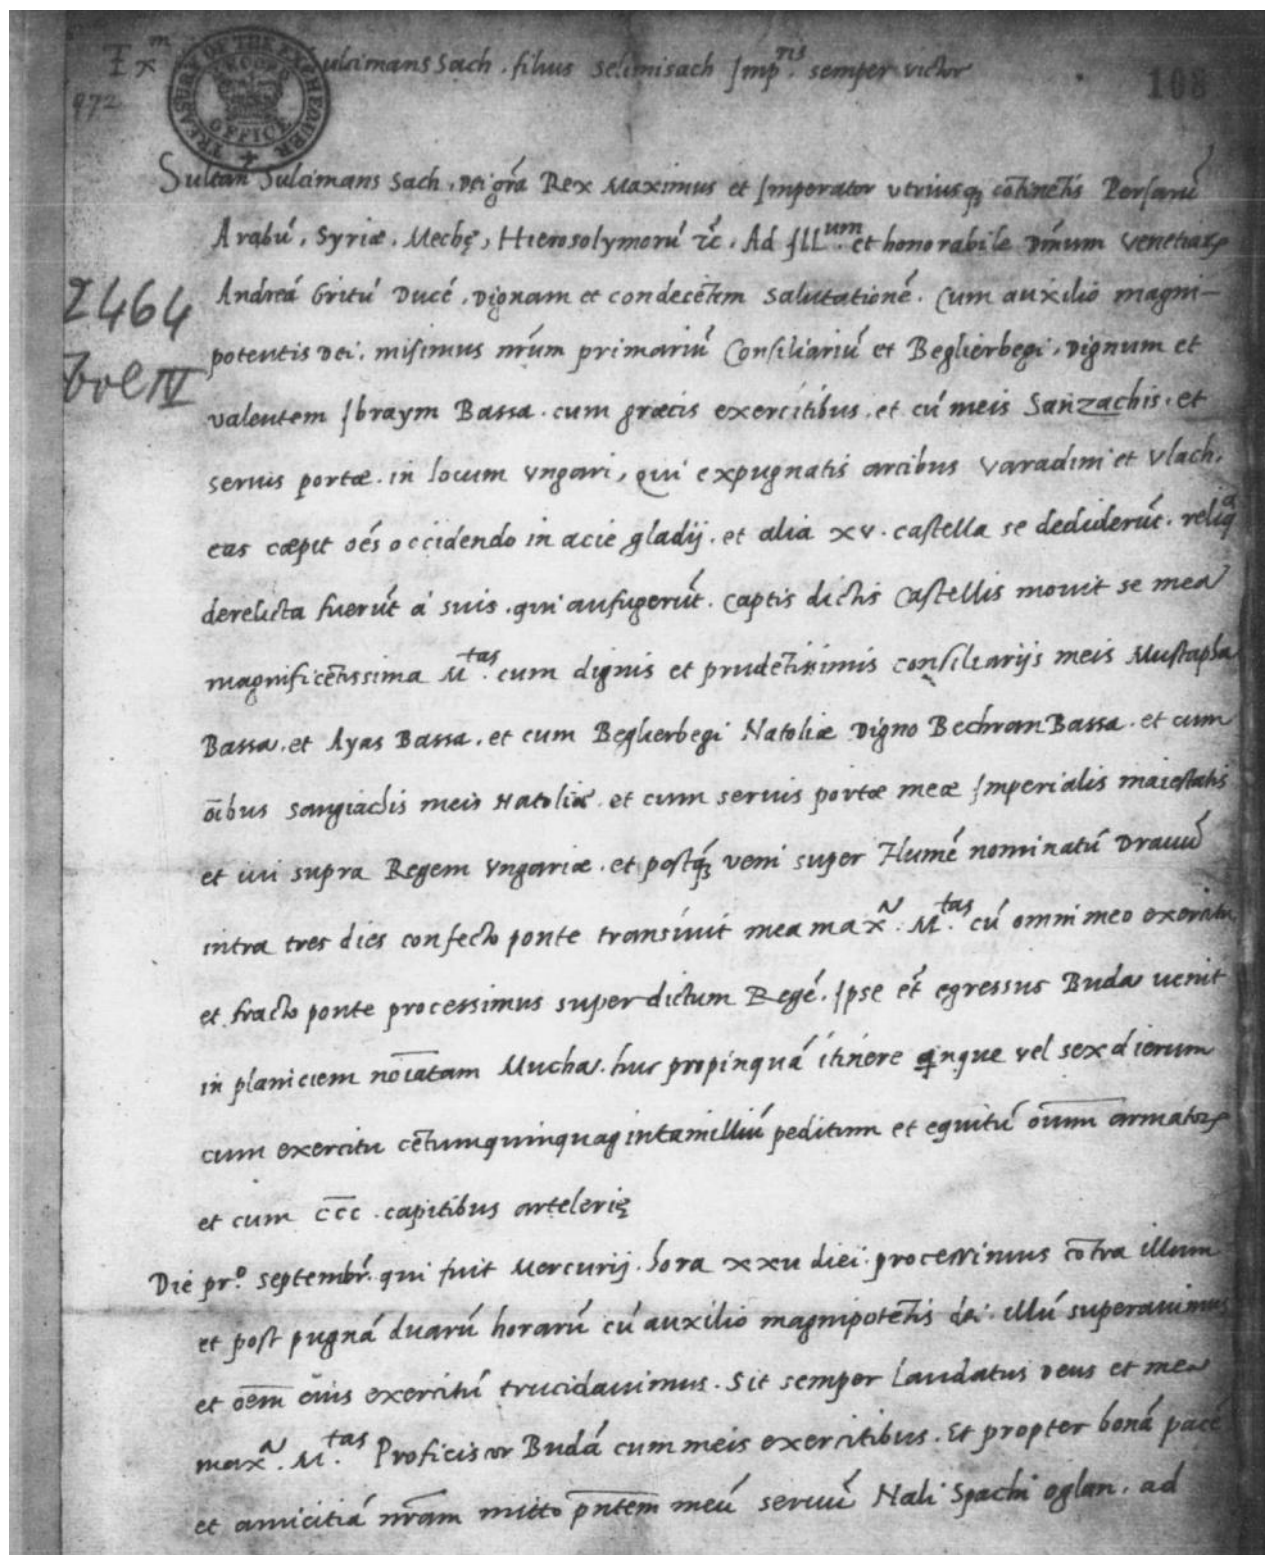 Ex^m Sulcimans Sach. filius selimisach Imp^ris. semper victor
108
972
TREASURY OF THE EXCHEQUER RECORD OFFICE
Sultan Sulcimans Sach, dei grã Rex Maximus et Imperator utriusq; cõtinẽtis Persarũ
Arabũ, Syriæ, Mechę, Hierosolymorũ &c̃. Ad Ill^um. et honorabilẽ Dñum Venetiarꝝ
2464
Andreã Gritũ Ducẽ, dignam et condecẽtem salutationẽ. Cum auxilio magni-
potentis dei. misimus nr̃um primariũ Consiliariũ et Beglierbegi, dignum et
Vol IV
valentem Ibraym Bassa. cum græcis exercitibus. et cũ meis Sanzachis. et
seruis portæ. in locum Vngari, qui expugnatis arcibus Varadini et Vlach.
eas cæpit oẽs occidendo in acie gladij. et alia xv. castella se dediderũt. reliq^a
derelicta fuerũt a suis. qui aufugerũt. Captis dictis Castellis mouit se mea
magnificẽtissima M^tas. cum dignis et prudẽtissimis consiliarijs meis Mustapha
Bassa. et Ayas Bassa. et cum Beglierbegi Natoliæ Digno Bechram Bassa. et cum
oĩbus sangiachis meis Natoliæ. et cum seruis portæ meæ Imperialis maiestatis
et iui supra Regem Vngariæ. et postq̃ȝ veni super Flumẽ nominatũ Drauũ
intra tres dies confecto ponte transiuit mea max^a. M^tas. cũ omni meo exercitu
et fracto ponte processimus super dictum Regẽ. Ipse ẽt egressus Buda uenit
in planiciem noĩatam Mucha. huc propinquã itinere qinque vel sex dierum
cum exercitu cẽtumquinquagintamilliũ peditum et equitũ oĩum armatorꝝ
et cum ccc. capitibus artelerię
Die pr^o. septembr̃. qui fuit Mercurij. hora xxu diei. processimus cõtra illum
et post pugnã duarũ horarũ cũ auxilio magnipotẽtis dei. illũ superauimus
et oẽm eius exercitũ trucidauimus. Sit semper laudatus Deus et mea
max^a. M^tas. Proficiscor Budã cum meis exercitibus. Et propter bonã pacẽ
et amicitiã nr̃am mitto pñtem meũ seruũ Hali Spachi oglan. ad